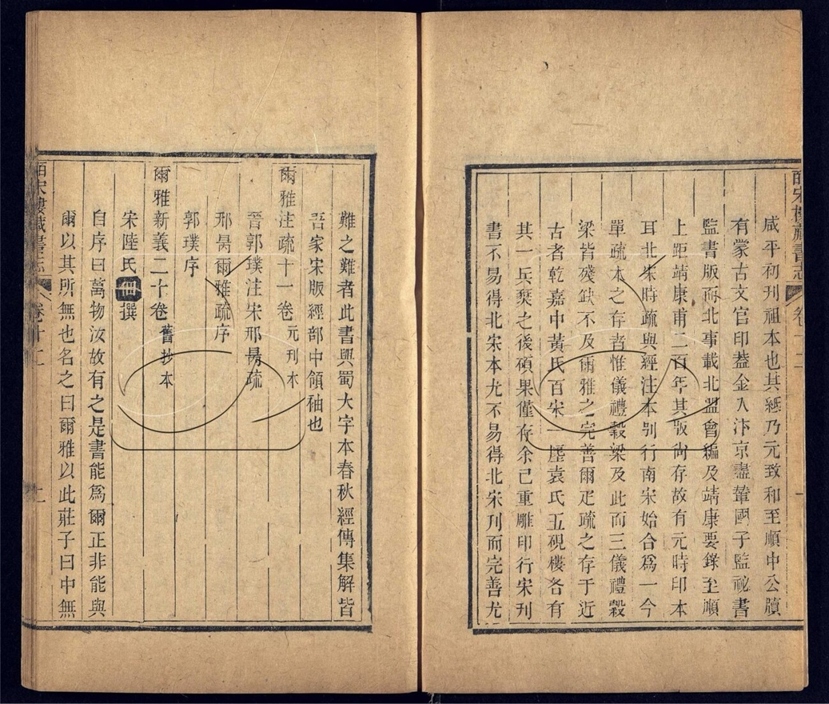 咸平初刊祖本也其紙乃元致和至順中公牘
有蒙古文官印蓋金人汴京盡輦國子監秘書
監書版而北事載北盟會編及靖康要錄至順
上距靖康甫二百年其版尚存故有元時印本
耳北宋時疏與經注本别行南宋始合爲一今
單疏本之存者惟儀禮穀梁及此而三儀禮穀
梁皆殘缺不及爾雅之完善爾疋疏之存于近
古者乾嘉中黃氏百宋一廛袁氏五硯樓各有
其一兵燹之後碩果僅存余已重雕印行宋刋
書不易得北宋本尤不易得北宋刋而完善尤
皕宋樓藏書志 卷十二
難之難者此書與蜀大字本春秋經傳集解皆
吾家宋版經部中領袖也
爾雅注疏十一卷 元刋本
晉郭璞注宋邢昺疏
邢昺爾雅疏序
郭璞序
爾雅新義二十卷 舊抄本
宋陸氏佃撰
自序曰萬物汝故有之是書能爲爾正非能與
爾以其所無也名之曰爾雅以此莊子曰中無
皕宋樓藏書志 卷十二